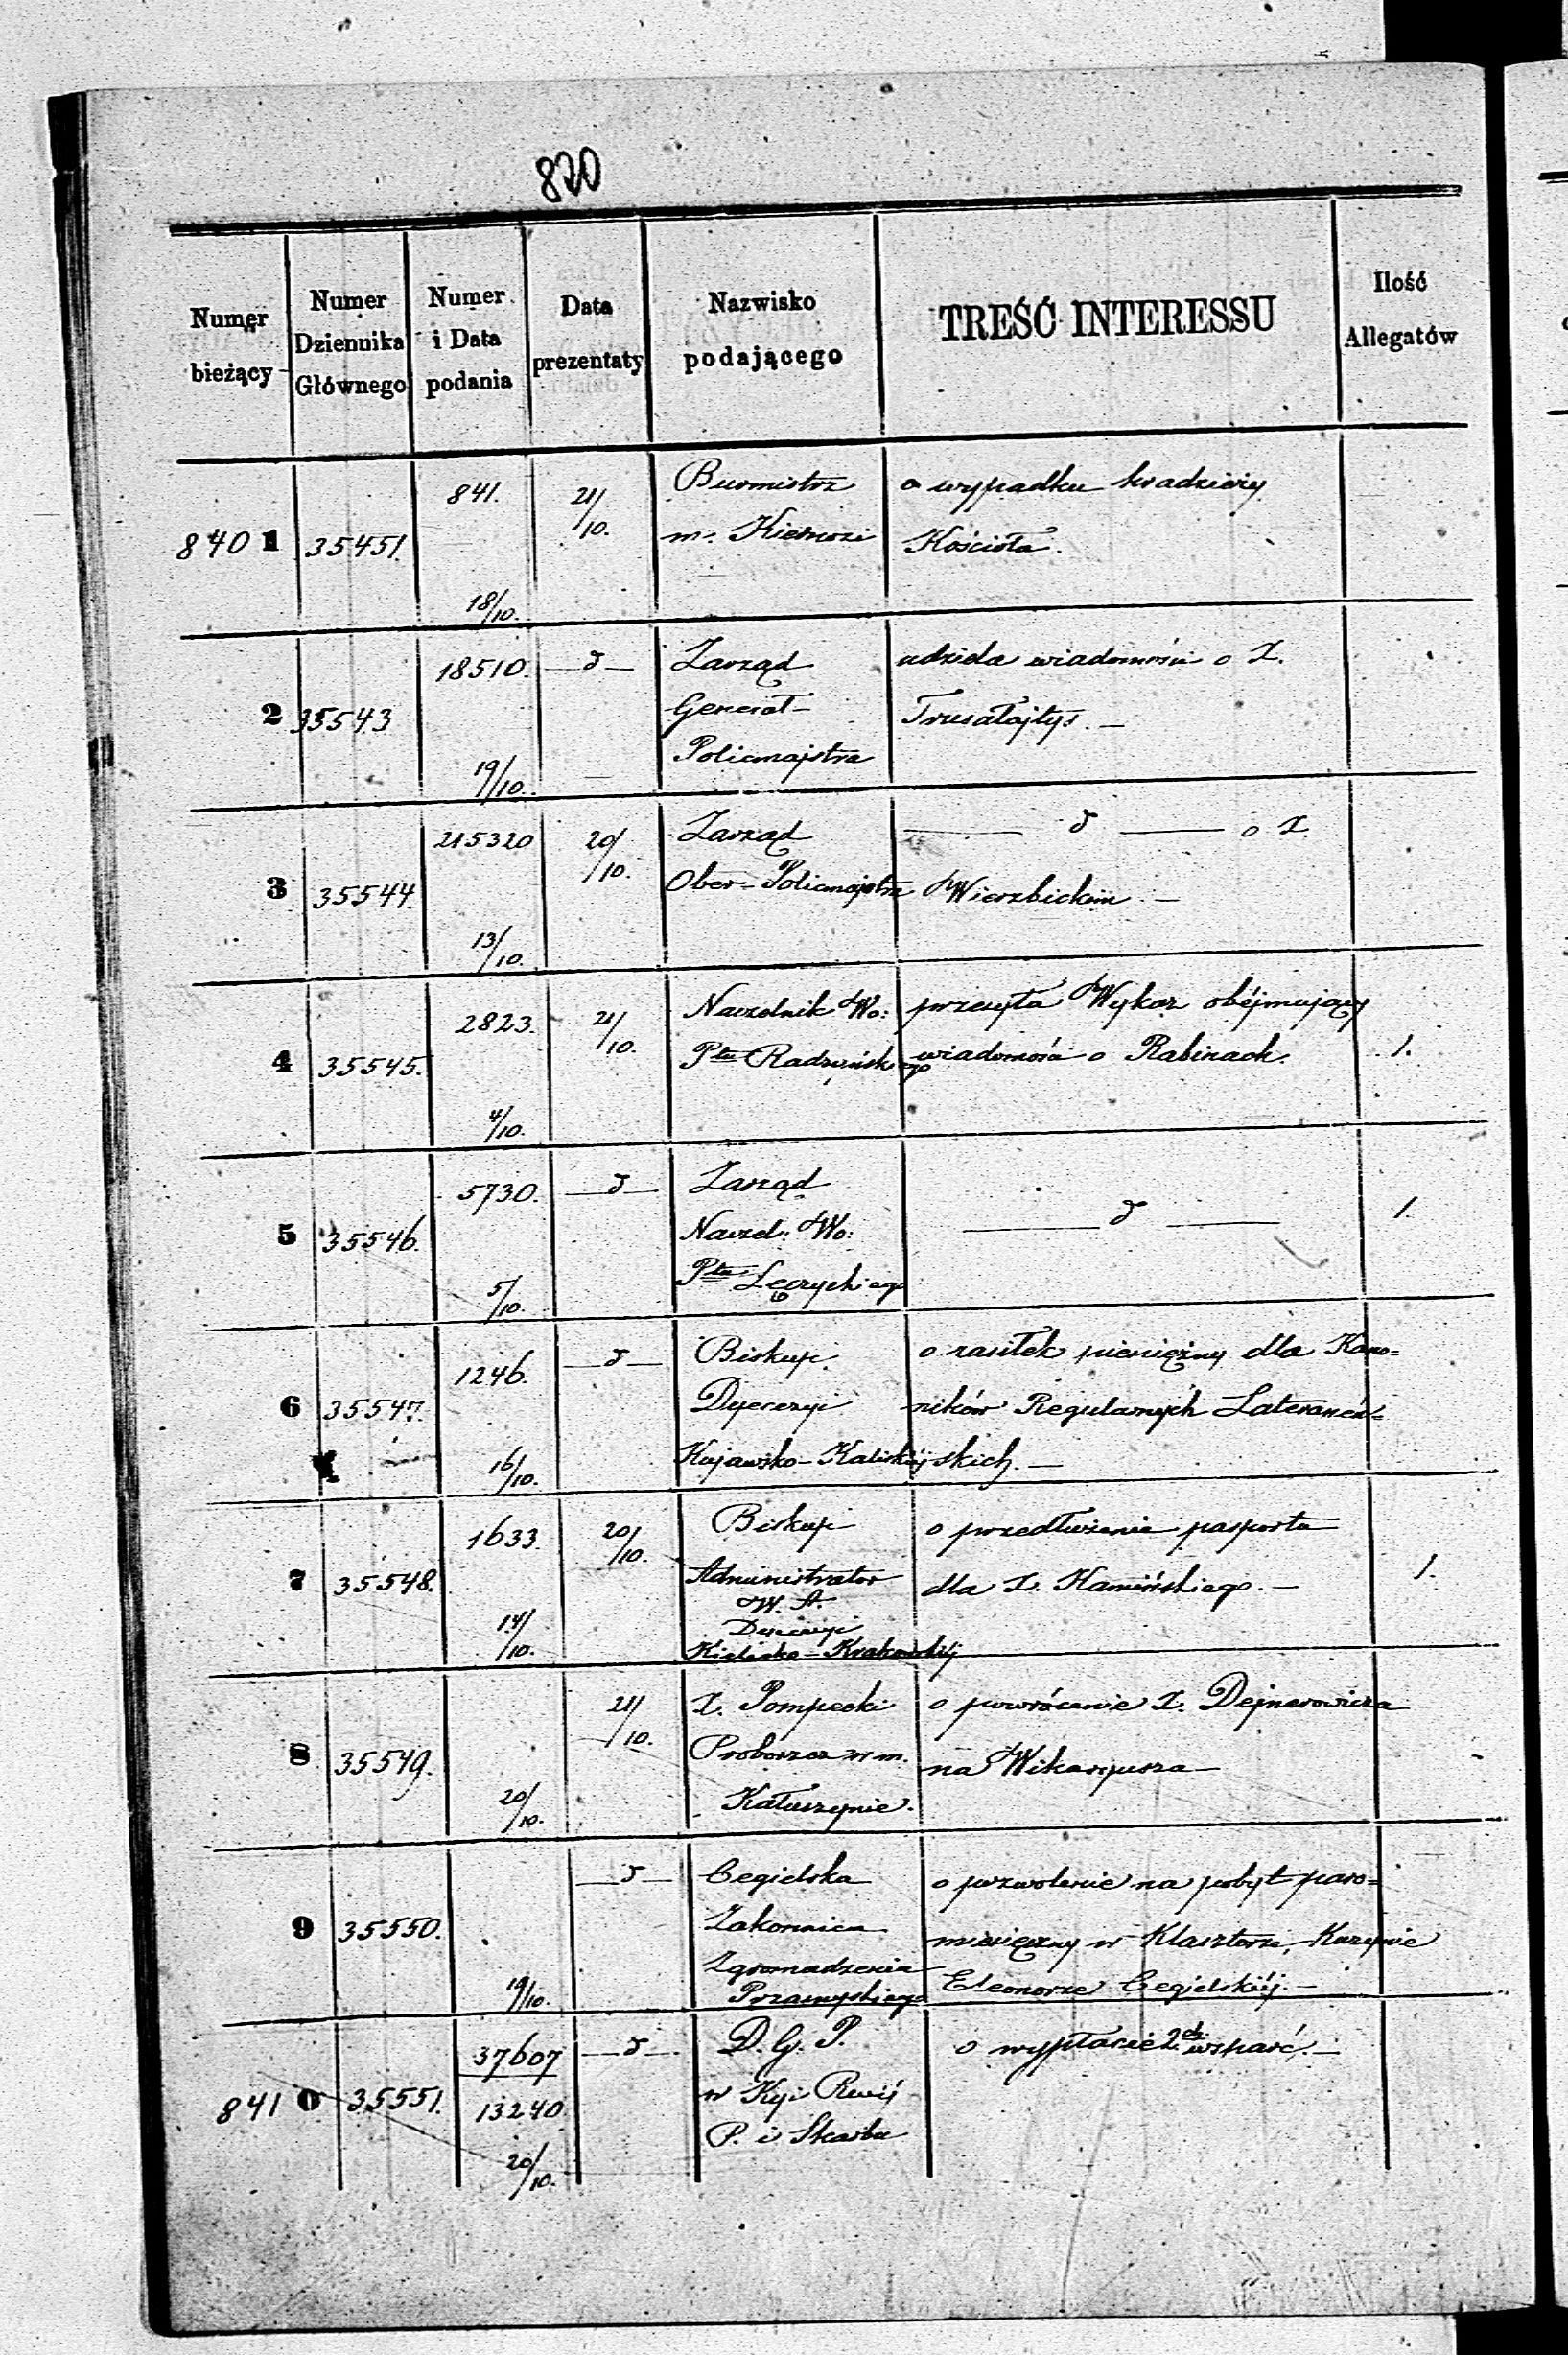 820
Numer bieżący
Numer Dziennika Głównego
Numer i Data podania
Data prezentaty
Nazwisko podającego
TREŚĆ INTERESSU
Ilość Allegatów
8401 35451. 841. 18/10. 21/10.
Burmistrz
m. Kiernozi
o wypadku kradzieży
Kościoła.
2 35543 18510. 19/10. —d—
Zarząd
Generał-
Policmajstra
udziela wiadomości o X.
Trusałajtys. —
3 35544. 215320 13/10. 20/10.
Zarząd
Ober-Policmajstra
— d — o X.
Wierzbickim. —
4 35545. 2823. 4/10. 21/10.
Naczelnik Wo:
Ptu Radzyńskiego
przesyła Wykaz obejmujący
wiadomości o Rabinach.
1.
5 35546. 5730. 5/10. —d—
Zarząd
Naczel: Wo:
Ptu Łęczyckiego
— d —
1.
6 35547. 1246. 16/10. —d—
Biskup
Dyecezyi
Kujawsko-Kaliskiéj
o zasiłek pieniężny dla Kano=
ników Regularnych Laterań=
skich. —
7 35548. 1633. 14/10. 20/10.
Biskup
Administrator
Dyecezyi
Kielecko-Krakowskiéj
o przedłużenie pasportu
dla X. Kamińskiego. —
1.
8 35549. 20/10. 21/10.
X. Pompecki
Proboszcz w m.
Kałuszynie.
o powrócenie X. Dejnarowicza
na Wikaryusza —
9 35550. 19/10. —d—
Cegielska
Zakonnica
Zgromadzenia
Przamyskiego
o pozwolenie na pobyt paro=
miesięczny w Klasztorze, Kuzynie
Eleonorze Cegielskiéj. —
8410 35551. 37607 13240 20/10. —d—
D. G. P.
w Kyi Rewij
P. i Skarbu
o wypłacie 2ch wsparć. —